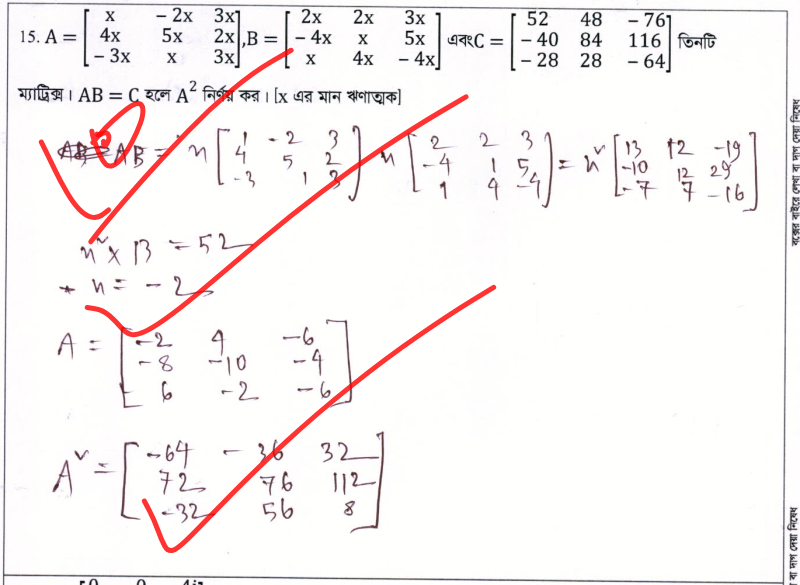 15. A = [x - 2x 3x; 4x 5x 2x; - 3x x 3x], B = [2x 2x 3x; - 4x x 5x; x 4x - 4x] এবং C = [52 48 - 76; - 40 84 116; - 28 28 - 64] তিনটি
ম্যাট্রিক্স। AB = C হলে A² নির্ণয় কর। [x এর মান ঋণাত্মক]
AB = x [1 -2 3; 4 5 2; -3 1 3] x [2 2 3; -4 1 5; 1 4 -4] = x² [13 12 -19; -10 12 29; -7 7 -16]
x² × 13 = 52
x = -2
A = [-2 4 -6; -8 -10 -4; 6 -2 -6]
A² = [-64 -36 32; 72 76 112; -32 56 8]
বক্সের বাইরে লেখা বা দাগ দেয়া নিষেধ
বা দাগ দেয়া নিষেধ